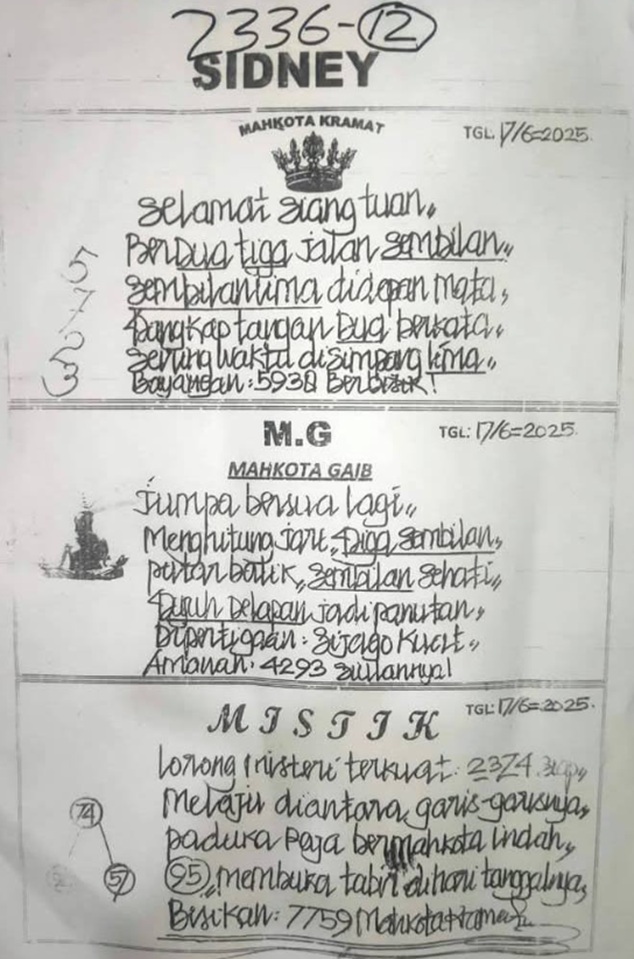 2336-12
SIDNEY
MAHKOTA KRAMAT
TGL. 17/6=2025.
Selamat siang tuan,,
Berdua tiga jalan sembilan,,
5
sembilan lima didepan mata,
7
tangkap tangan Dua berkata,
2
sering waktu disimpang lima,,
3
Bayangan: 5930 Berbisik!
M.G
TGL: 17/6=2025.
MAHKOTA GAIB
Jumpa bersua lagi,,
Menghitung jari, Tiga sembilan,
putar balik, sembilan sehati,
Tujuh Delapan jadi panutan,
Dipertigaan: Sijago Kuat,,
Amanah: 4293
MISTIK
TGL: 17/6=2025.
Lorong misteri terkuat: 2374 siap,,
Melaju diantara garis-garisnya,
74
paduka Raja bermahkota indah,
57
95,, membuka tabir dihari tanggalnya,
Bisikan: 7759 Mahkota